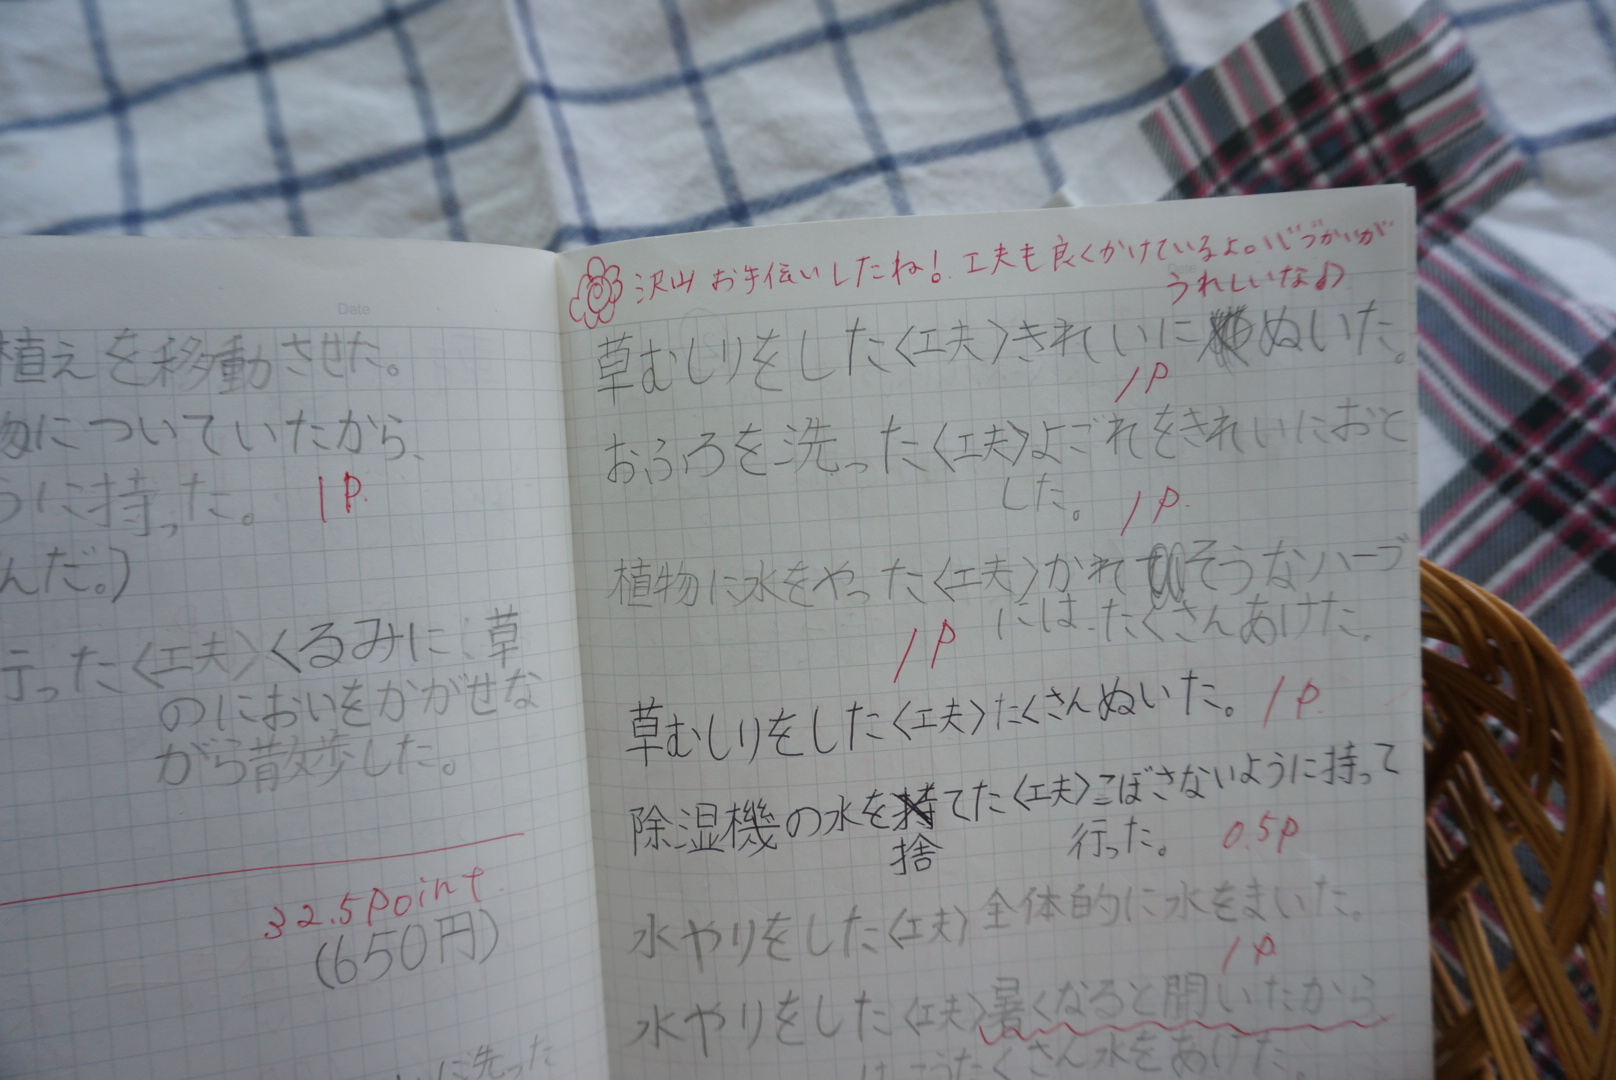 Date
植えを移動させた。
物についていたから、
うに持った。 1P.
んだ。)
行った〈工夫〉くるみに草
のにおいをかがせな
がら散歩した。
32.5point.
(650円)
に洗った
沢山 お手伝いしたね! 工夫も良くかけているよ。心づかいが
うれしいな♪
草むしりをした〈工夫〉きれいにぬいた。
1P
おふろを洗った〈工夫〉よごれをきれいにおと
した。 1P.
植物に水をやった〈工夫〉かれそうなハーブ
には、たくさんあげた。
1P
草むしりをした〈工夫〉たくさんぬいた。 1P.
除湿機の水を捨てた〈工夫〉こぼさないように持って
行った。 0.5P
水やりをした〈工夫〉全体的に水をまいた。
1P
水やりをした〈工夫〉暑くなると聞いたから
たくさん水をあげた。